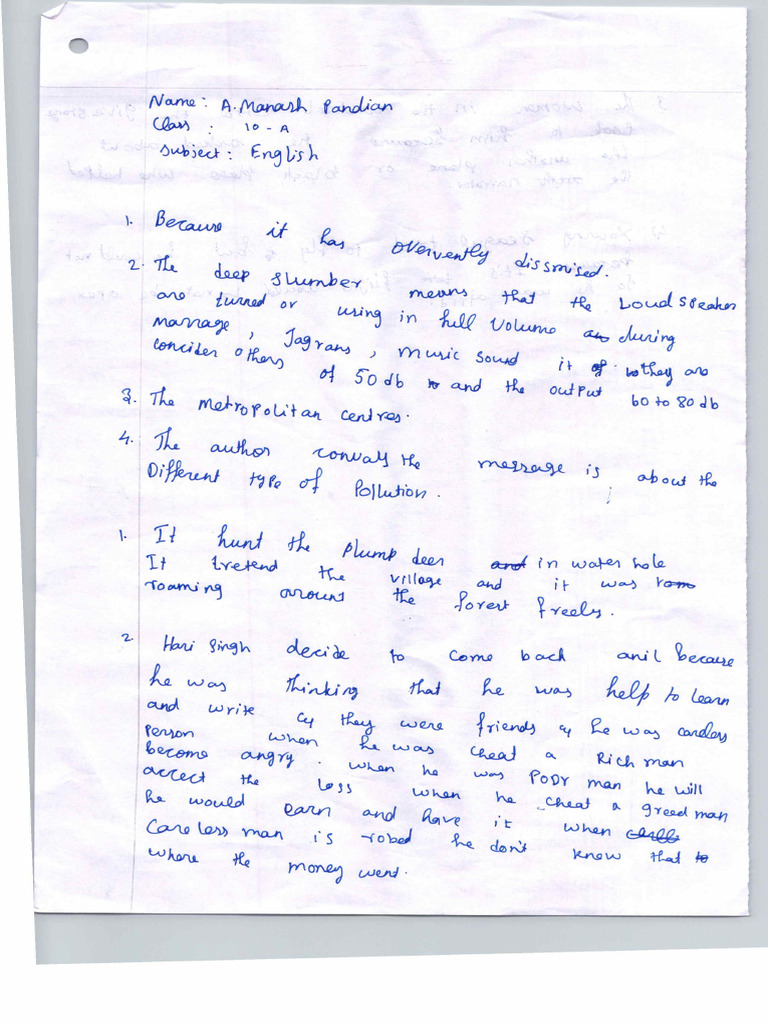 Name: A. Manash Pandian
Class : 10 - A
Subject: English
1. Because it has overvently dissmised.
2. The deep slumber means that the Loud speaker
are turned or using in full volume an during
marrage, Jagrans, music sound it of to they are
concider others of 50 db to and the output 60 to 80 db
3. The metropolitan centres.
4. The author convays the message is about the
Different type of Pollution.
1. It hunt the plump deer and in water hole
It tretend the village and it was rom
roaming arount the forest freely.
2. Hari Singh decide to come back anil because
he was thinking that he was help to learn
and write cy they were friends cy he was careless
person when he was cheat a Rich man
become angry. when he was poor man he will
accect the loss when he cheat a greed man
he would earn and have it when
Careless man is robed he don't know that to
where the money went.